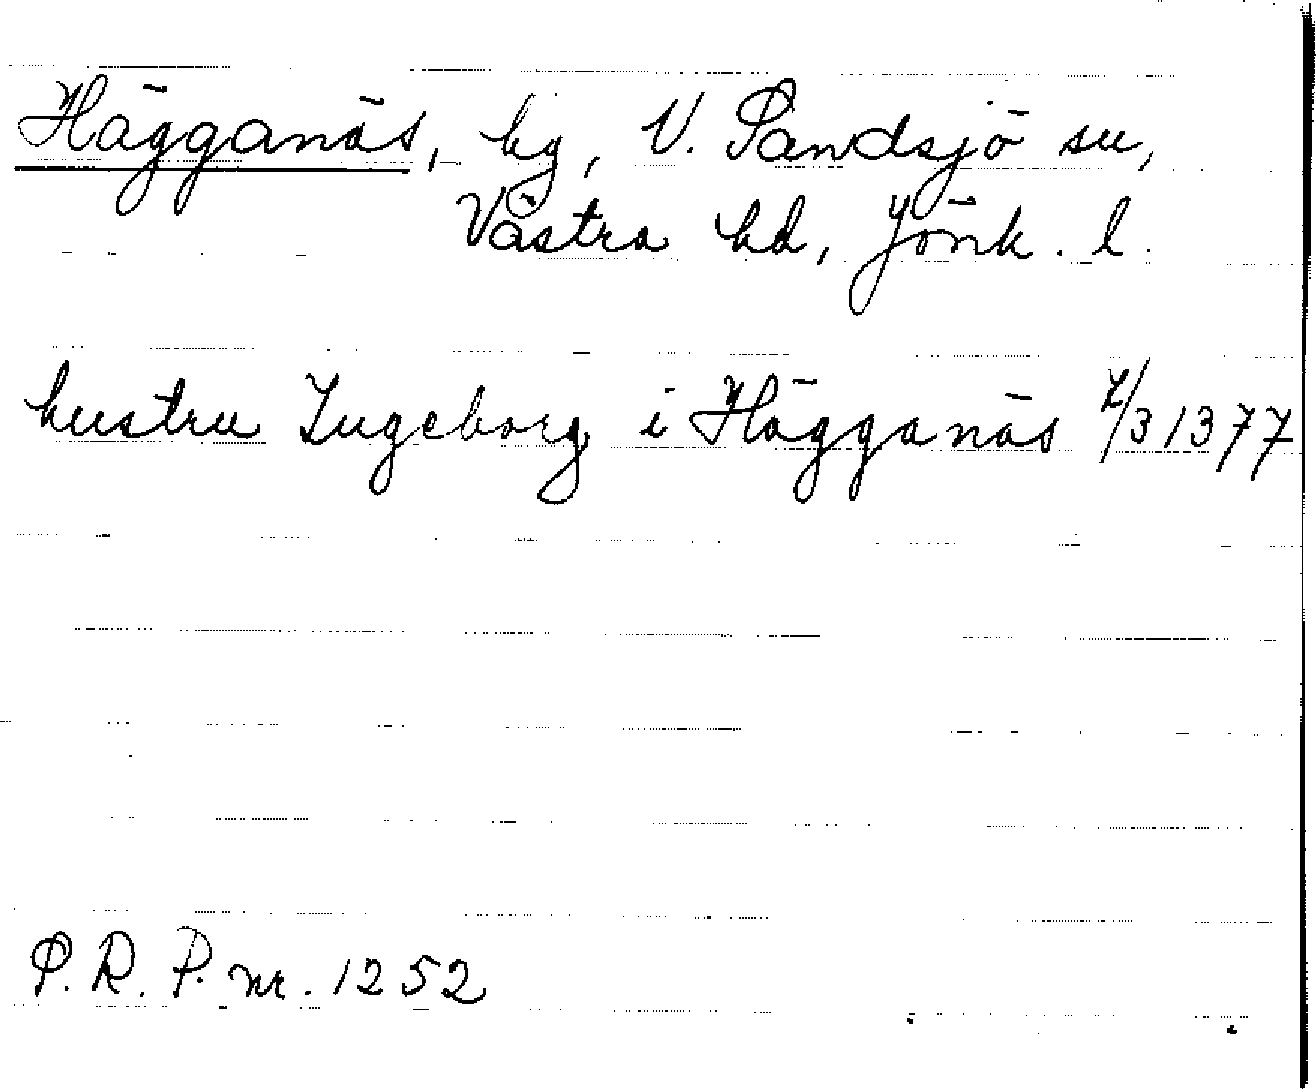 Hägganäs, by, V. Sandsjö sn,
Västra hd, Jönk. l.
hustru Ingeborg i Hägganäs 7/3 1377
P. R. P. nr. 1252